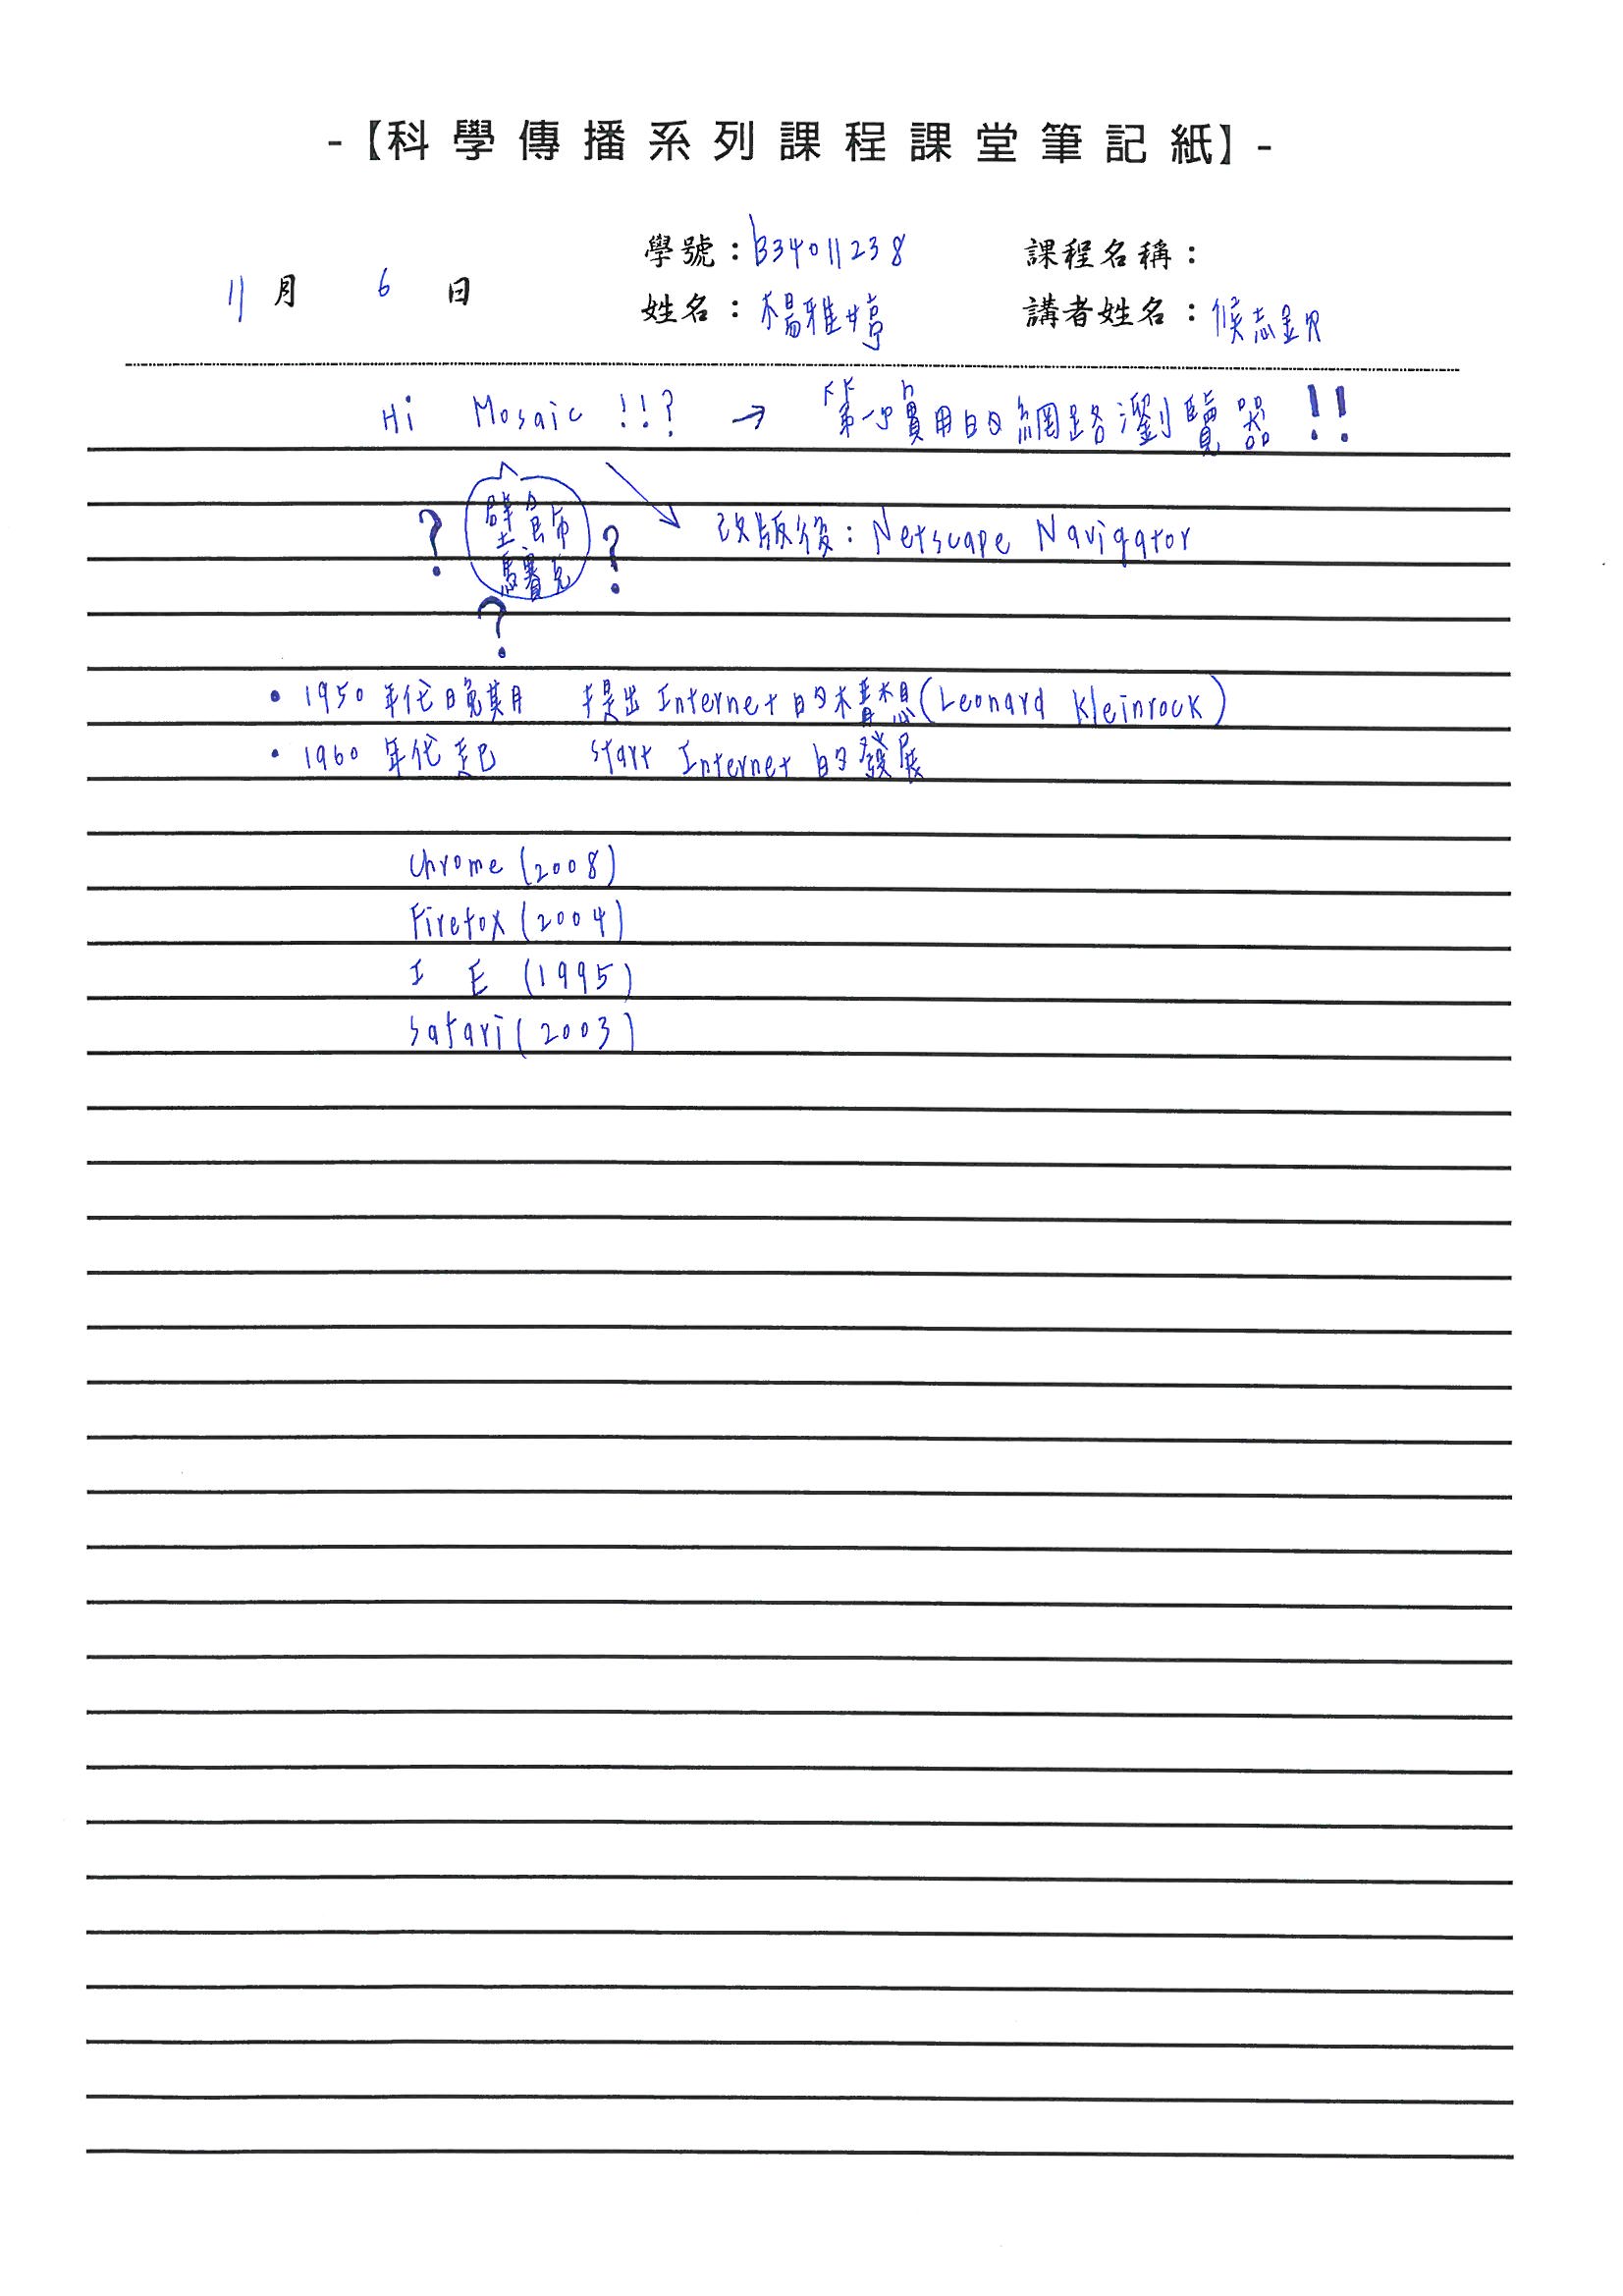 -【科學傳播系列課程課堂筆記紙】-
學號：B34011238 課程名稱：
11月 6 日 姓名：楊雅婷 講者姓名：候志欽
Hi Mosaic !!? → 第一實用的網路瀏覽器 !!
壁面布
馬賽克
? ? ?
改版後：Netscape Navigator
• 1950 年代晚期 提出 Internet 的構想(Leonard Kleinrock)
• 1960 年代起 start Internet 的發展
Chrome (2008)
Firefox (2004)
I E (1995)
Safari (2003)